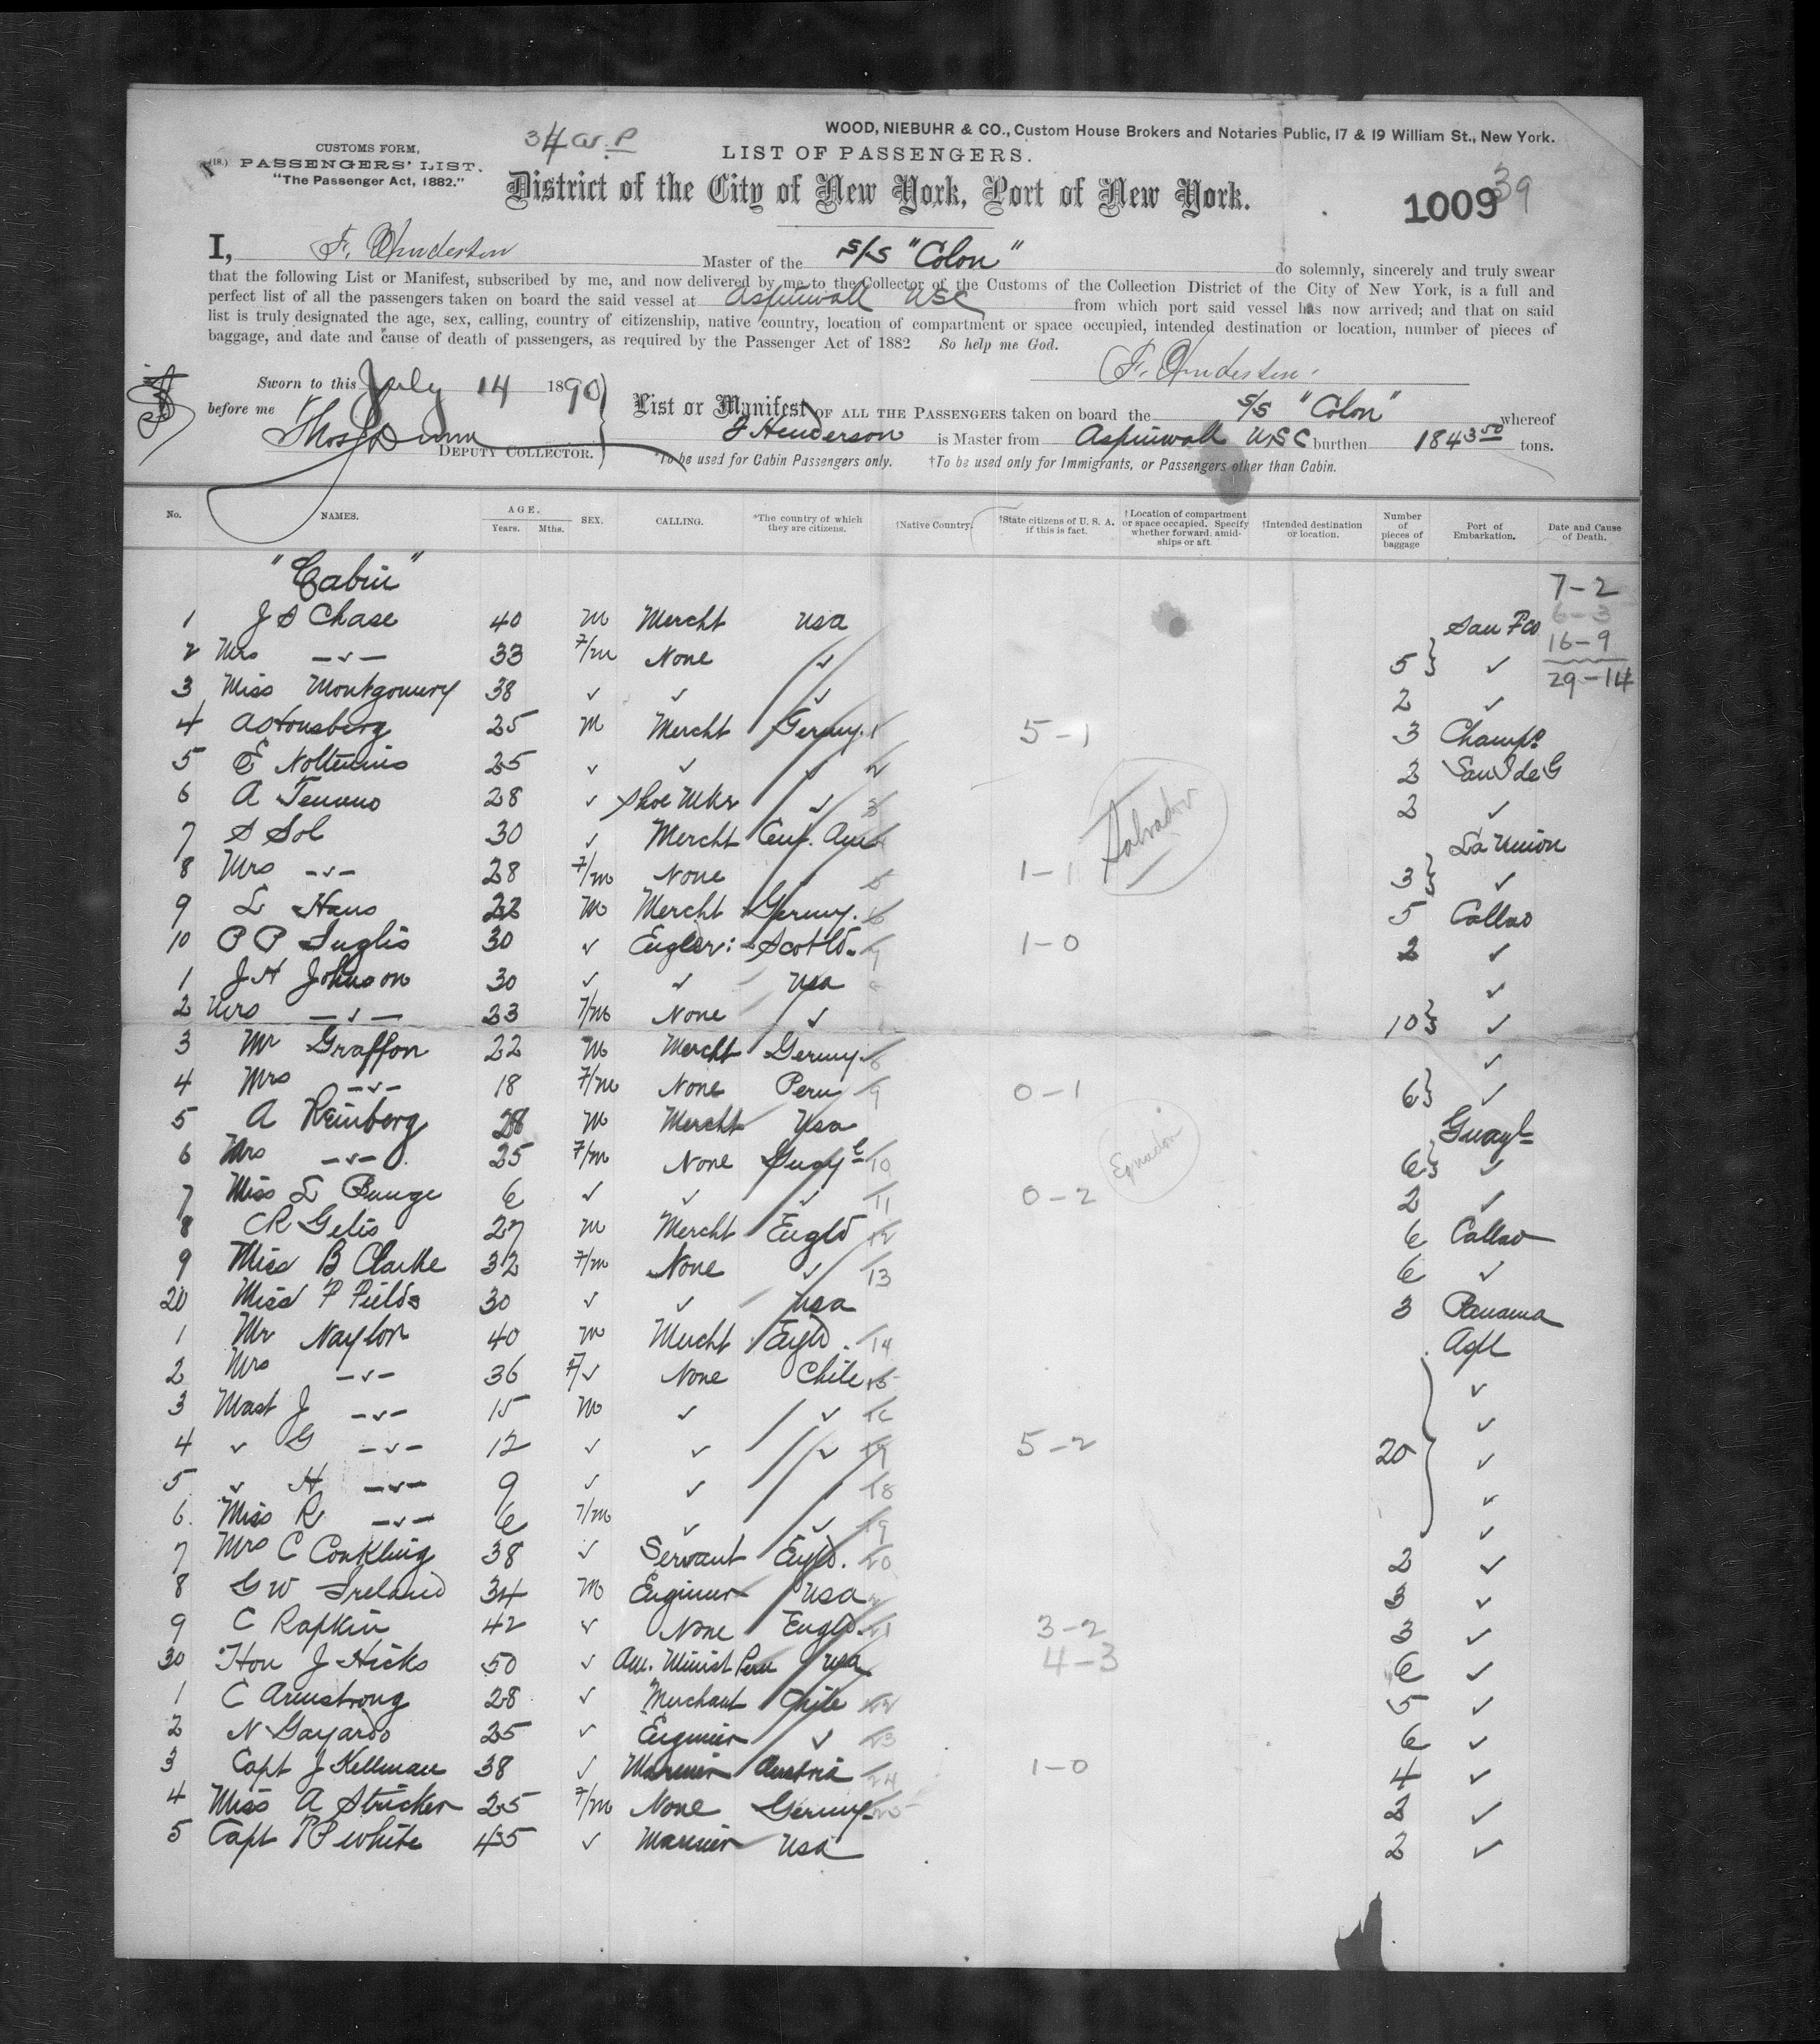 34 W. P
WOOD, NIEBUHR & CO., Custom House Brokers and Notaries Public, 17 & 19 William St., New York.
CUSTOMS FORM,
PASSENGERS' LIST.
"The Passenger Act, 1882."
LIST OF PASSENGERS.
District of the City of New York, Port of New York.
1009 39
I, F. Henderson Master of the S/S "Colon" do solemnly, sincerely and truly swear
that the following List or Manifest, subscribed by me, and now delivered by me to the Collector of the Customs of the Collection District of the City of New York, is a full and
perfect list of all the passengers taken on board the said vessel at Aspinwall USC from which port said vessel has now arrived; and that on said
list is truly designated the age, sex, calling, country of citizenship, native country, location of compartment or space occupied, intended destination or location, number of pieces of
baggage, and date and cause of death of passengers, as required by the Passenger Act of 1882 So help me God.
F. Henderson
Sworn to this July 14 1890
before me
Thos Dunn
DEPUTY COLLECTOR.
List or Manifest OF ALL THE PASSENGERS taken on board the S/S "Colon" whereof
F Henderson is Master from Aspinwall USC burthen 1843 50 tons.
*To be used for Cabin Passengers only. †To be used only for Immigrants, or Passengers other than Cabin.
No. NAMES. AGE. Years. Mths. SEX. CALLING. *The country of which they are citizens. †Native Country. †State citizens of U. S. A. if this is fact. †Location of compartment or space occupied. Specify whether forward, amidships or aft. †Intended destination or location. Number of pieces of baggage Port of Embarkation. Date and Cause of Death.
"Cabin"
7-2
6-3
16-9
29-14
1 J S Chase 40 m Mercht USA San Fco
2 Mrs -✓- 33 F/m None ✓ 5 ✓
3 Miss Montgomery 38 ✓ ✓ ✓ 2 ✓
4 25 m Mercht Germy. 1 5-1 3 Champo
5 E Noltenius 25 ✓ ✓ ✓ 2 2 San J de G
6 A 28 ✓ Shoe Mkr ✓ 3 2 ✓
7 S Sol 30 ✓ Mercht Cent. Am 4 Salvador La Union
8 Mrs -✓- 28 F/m None 5 1-1 3 ✓
9 L Haus 22 m Mercht Germy. 6 5 Callao
10 P P Inglis 30 ✓ Scotld. 7 1-0 2 ✓
1 J H Johnson 30 ✓ ✓ USA ✓
2 Mrs -✓- 23 F/m None ✓ 10 ✓
3 Mr Graffon 22 m Mercht Germy. 8 ✓
4 Mrs -✓- 18 F/m None Peru 9 0-1 6 ✓
5 A Reinberg 28 m Mercht USA Guayl
6 Mrs -✓- 25 F/m None Guayl 10 Equador 6 ✓
7 Miss L Bunge 6 ✓ ✓ ✓ 11 0-2 2 ✓
8 C R Gelis 27 m Mercht Engld 12 6 Callao
9 Miss B Clarke 32 F/m None ✓ 13 6 ✓
20 Miss P Fields 30 ✓ ✓ USA 3 Panama
1 Mr Naylor 40 m Mercht Engld. 14 Apll
2 Mrs -✓- 36 F/✓ None Chile 15 ✓
3 Mast J -✓- 15 m ✓ ✓ 16 ✓
4 ✓ G -✓- 12 ✓ ✓ ✓ 17 5-2 20 ✓
5 ✓ H -✓- 9 ✓ ✓ 18 ✓
6 Miss R -✓- 6 F/m ✓ ✓ 19 ✓
7 Mrs C Conkling 38 ✓ Servant Engld. 20 2 ✓
8 G W Ireland 34 m Engineer USA 3 ✓
9 C Rapkin 42 ✓ None Engld. 21 3-2 3 ✓
30 Hon J Hicks 50 ✓ Am. Minist Peru USA 4-3 6 ✓
1 C Armstrong 28 ✓ Merchant Chile 22 5 ✓
2 N Gayardo 25 ✓ Engineer ✓ 23 6 ✓
3 Capt J Kellman 38 ✓ Mariner Austria 24 1-0 4 ✓
4 Miss A Stricker 25 F/m None Germy 25 2 ✓
5 Capt P P White 45 ✓ Mariner USA 2 ✓